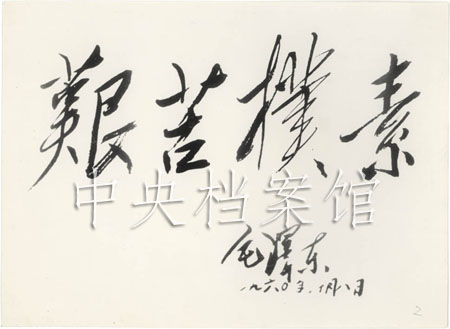 艱苦樸素
中央档案馆
毛澤东
一九六〇年 月八日
2